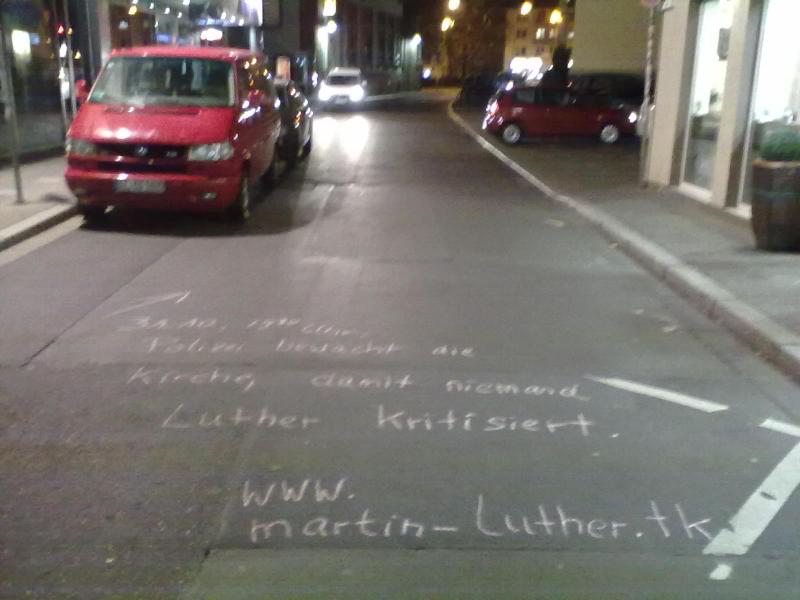 31.10., 18⁰⁰ Uhr,
Polizei bewacht die
Kirche, damit niemand
Luther Kritisiert.
www.
martin-Luther.tk